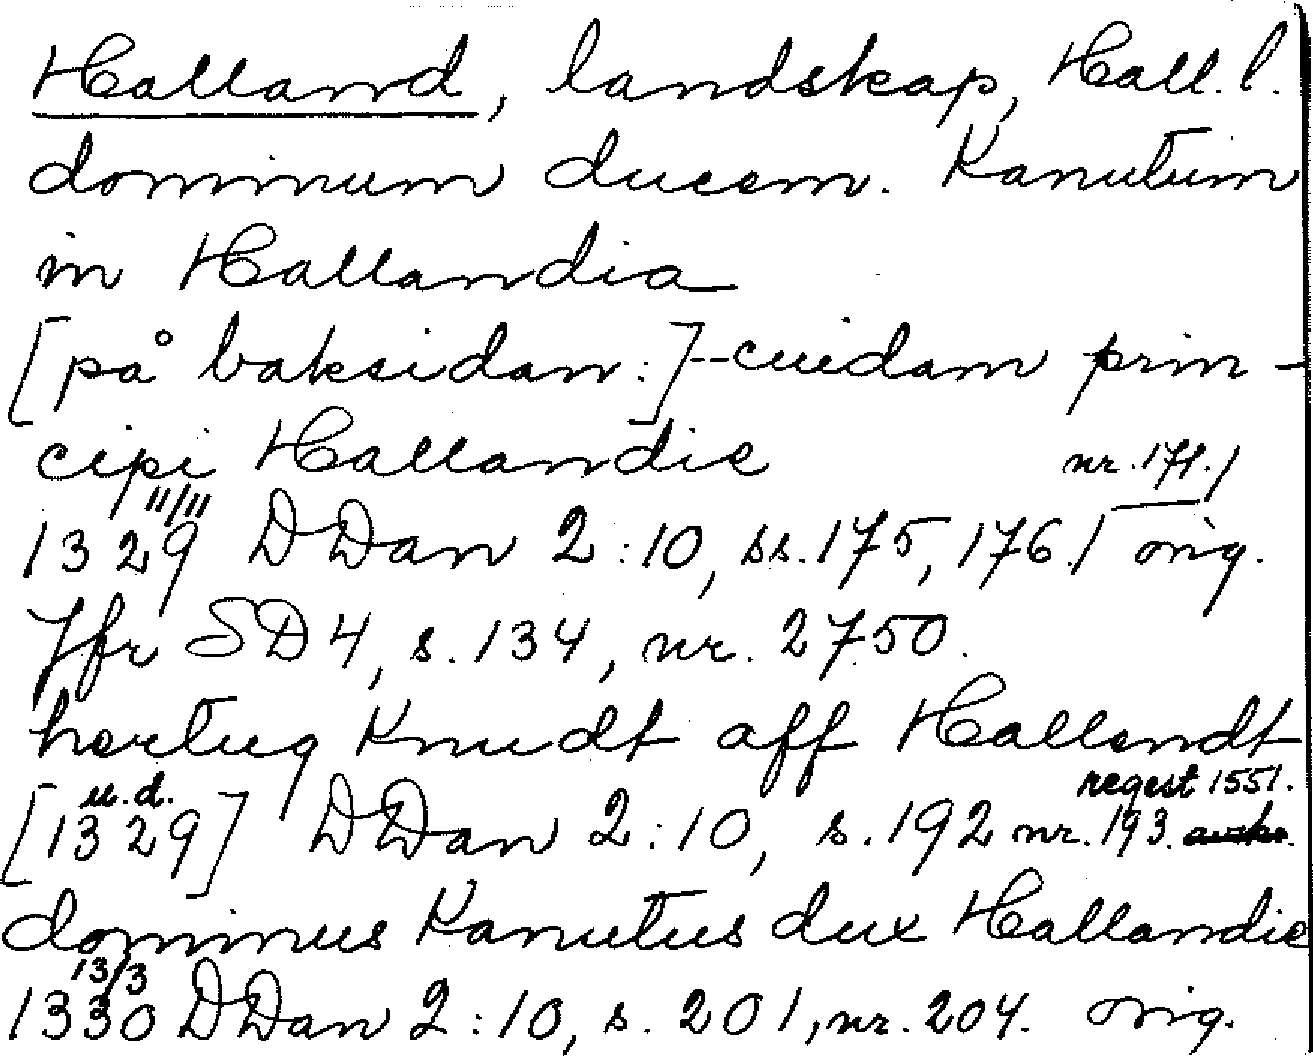 Halland, landskap, Hall. l.
dominum ducem. Kanutum
in Hallandia
[på baksidan:]--cuidam prin-
cipi Hallandie nr. 177./
11/11
1329 DDan 2:10, ss. 175, 176./ orig.
Jfr SD 4, s. 134, nr. 2750.
hertug Knudt aff Hallandt
u.d. regest 1551.
[1329] DDan 2:10, s. 192 nr. 193.
dominus Kanutus dux Hallandie
13/3
1330 DDan 2:10, s. 201, nr. 204. orig.